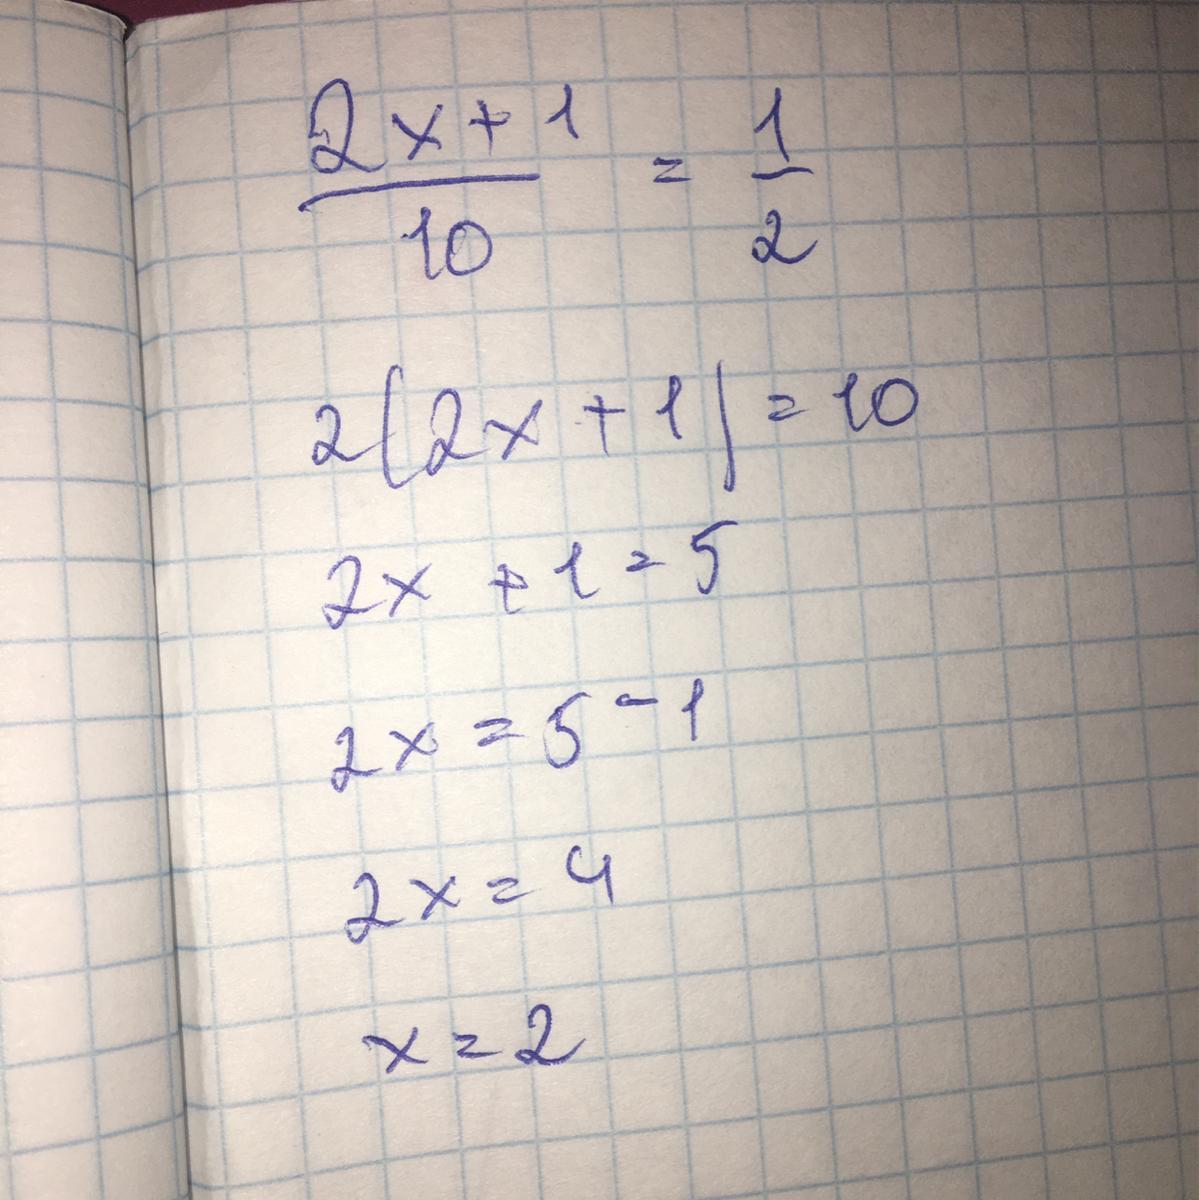 2x+1/10 = 1/2
2(2x+1)=10
2x+1=5
2x=5-1
2x=4
x=2